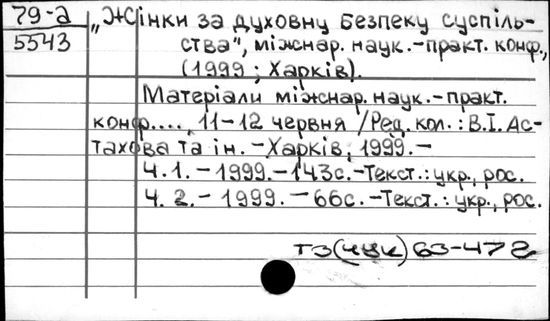 79-а
5543
„Жінки за духовну безпеку суспіль-
ства", міжнар. наук.-практ. конф.,
(1999 ; Харків).
Матеріали міжнар. наук.-практ.
конф...., 11-12 червня /Ред. кол.: В.І. Ас-
тахова та ін. - Харків, 1999. -
Ч. 1. - 1999. - 143с. - Текст.: укр., рос.
Ч. 2. - 1999. - 66с. - Текст.: укр., рос.
63-472